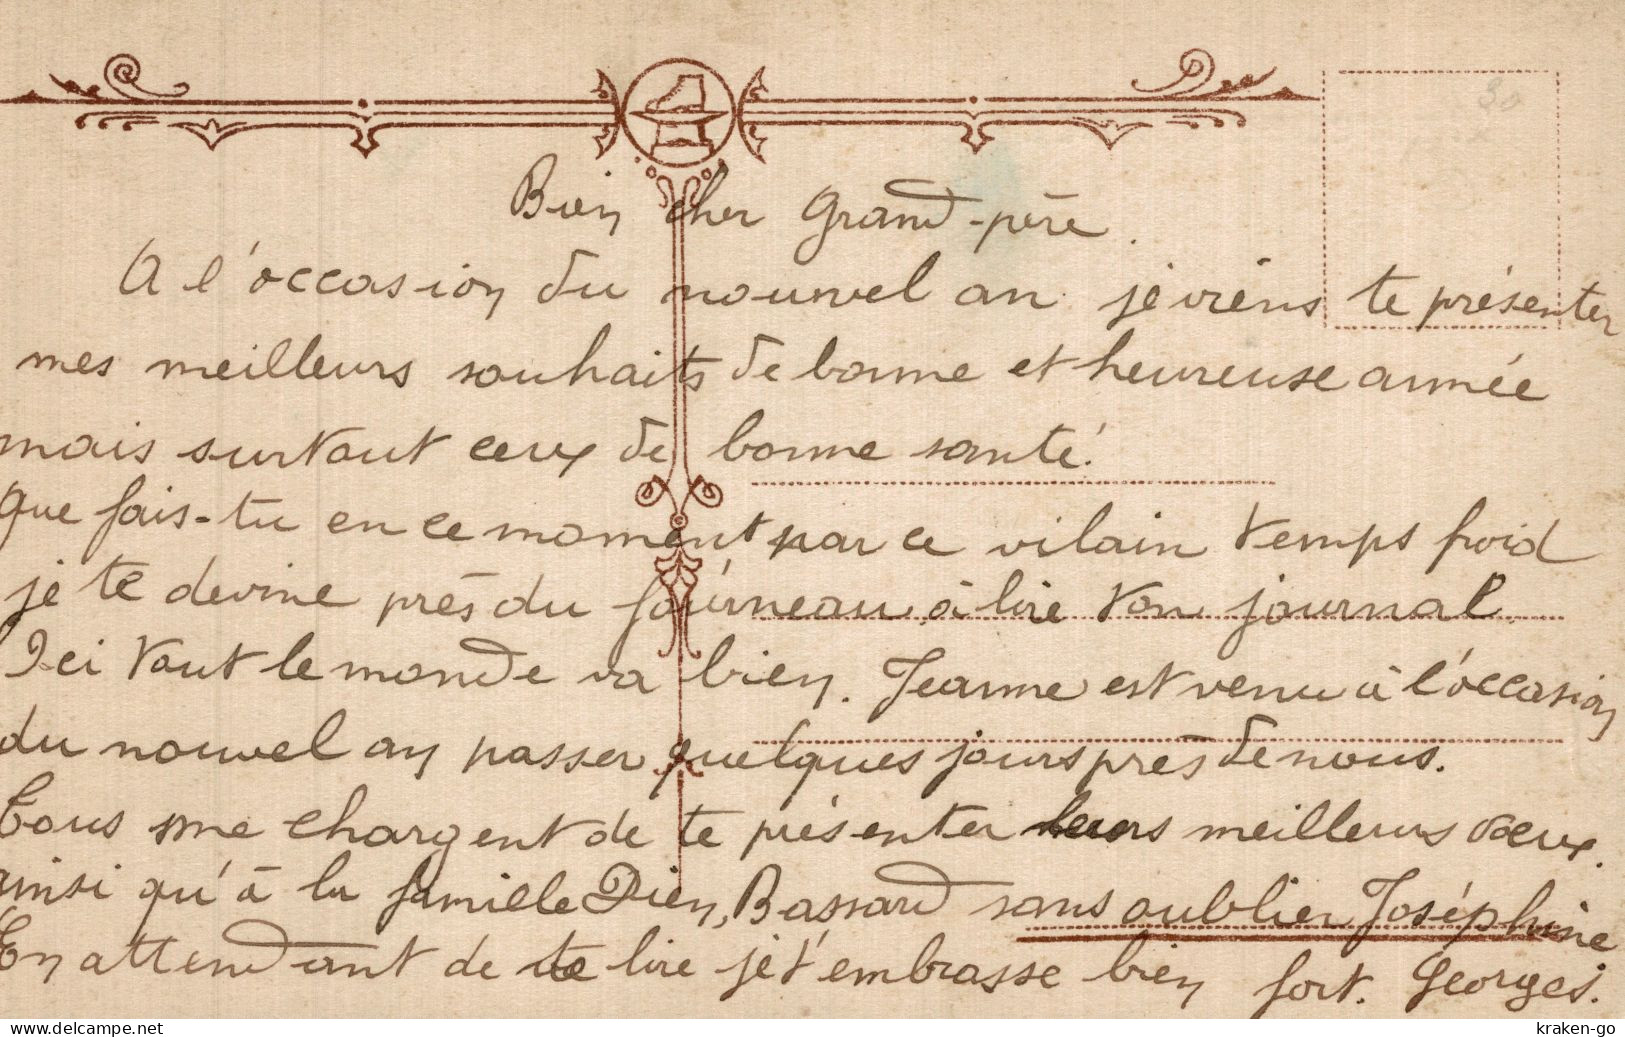 30
Bien cher Grand-père.
A l'occasion du nouvel an je viens te présenter
mes meilleurs souhaits de bonne et heureuse année
mais surtout ceux de bonne santé.
Que fais-tu en ce moment par ce vilain temps froid
je te devine près du fourneau à lire ton journal.
Ici tout le monde va bien. Jeanne est venu à l'occasion
du nouvel an passer quelques jours près de nous.
Tous me chargent de te présenter leurs meilleurs vœux.
ainsi qu'à la famille Dien, Bassard sans oublier Joséphine
En attendant de te lire je t'embrasse bien fort. Georges.
www.delcampe.net
kraken-go